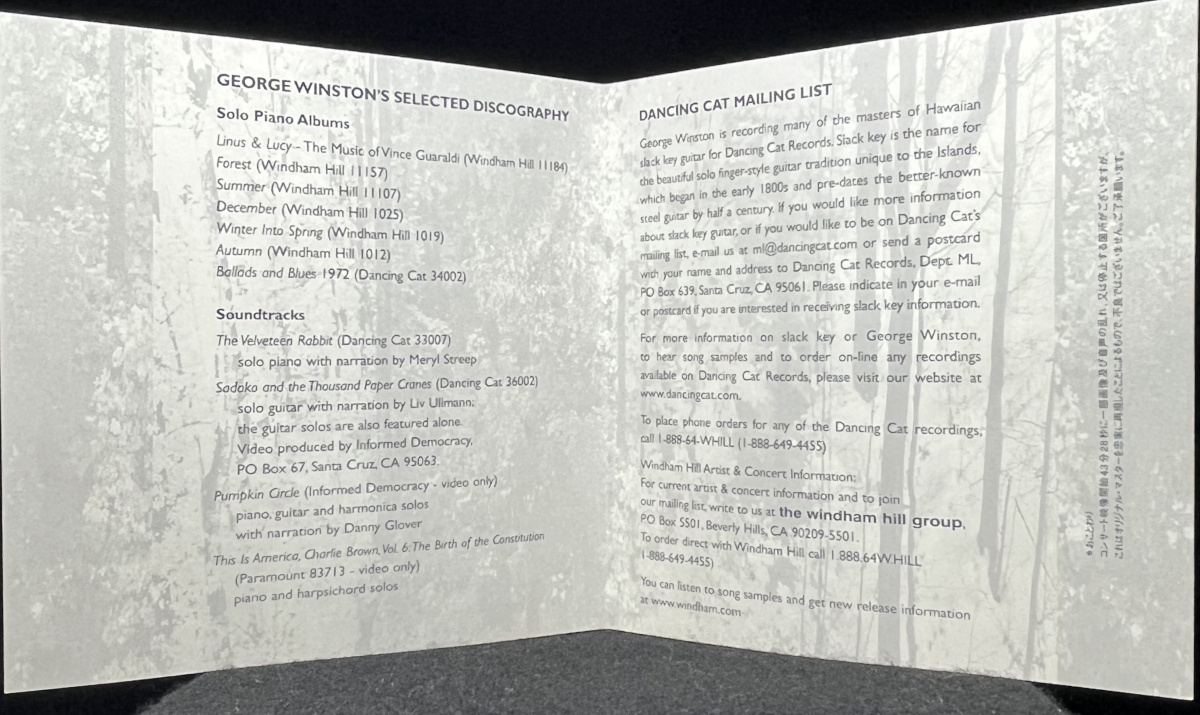 GEORGE WINSTON'S SELECTED DISCOGRAPHY
Solo Piano Albums
Linus & Lucy - The Music of Vince Guaraldi (Windham Hill 11184)
Forest (Windham Hill 11157)
Summer (Windham Hill 11107)
December (Windham Hill 1025)
Winter Into Spring (Windham Hill 1019)
Autumn (Windham Hill 1012)
Ballads and Blues 1972 (Dancing Cat 34002)
Soundtracks
The Velveteen Rabbit (Dancing Cat 33007)
solo piano with narration by Meryl Streep
Sadako and the Thousand Paper Cranes (Dancing Cat 36002)
solo guitar with narration by Liv Ullmann;
the guitar solos are also featured alone.
Video produced by Informed Democracy,
PO Box 67, Santa Cruz, CA 95063.
Pumpkin Circle (Informed Democracy - video only)
piano, guitar and harmonica solos
with narration by Danny Glover
This Is America, Charlie Brown, Vol. 6: The Birth of the Constitution
(Paramount 83713 - video only)
piano and harpsichord solos
DANCING CAT MAILING LIST
George Winston is recording many of the masters of Hawaiian
slack key guitar for Dancing Cat Records. Slack key is the name for
the beautiful solo finger-style guitar tradition unique to the Islands,
which began in the early 1800s and pre-dates the better-known
steel guitar by half a century. If you would like more information
about slack key guitar, or if you would like to be on Dancing Cat's
mailing list, e-mail us at ml@dancingcat.com or send a postcard
with your name and address to Dancing Cat Records, Dept. ML,
PO Box 639, Santa Cruz, CA 95061. Please indicate in your e-mail
or postcard if you are interested in receiving slack key information.
For more information on slack key or George Winston,
to hear song samples and to order on-line any recordings
available on Dancing Cat Records, please visit our website at
www.dancingcat.com.
To place phone orders for any of the Dancing Cat recordings,
call 1-888-64-WHILL (1-888-649-4455)
Windham Hill Artist & Concert Information:
For current artist & concert information and to join
our mailing list, write to us at the windham hill group,
PO Box 5501, Beverly Hills, CA 90209-5501.
To order direct with Windham Hill call 1.888.64W.HILL
1-888-649-4455)
You can listen to song samples and get new release information
at www.windham.com
*おことわり
コンサート映像開始43分28秒に一部画像及び音声の乱れ、又は停止する箇所がございますが、
これはオリジナル・マスターを忠実に再現したことによるもので、不良ではございません。ご了承願います。